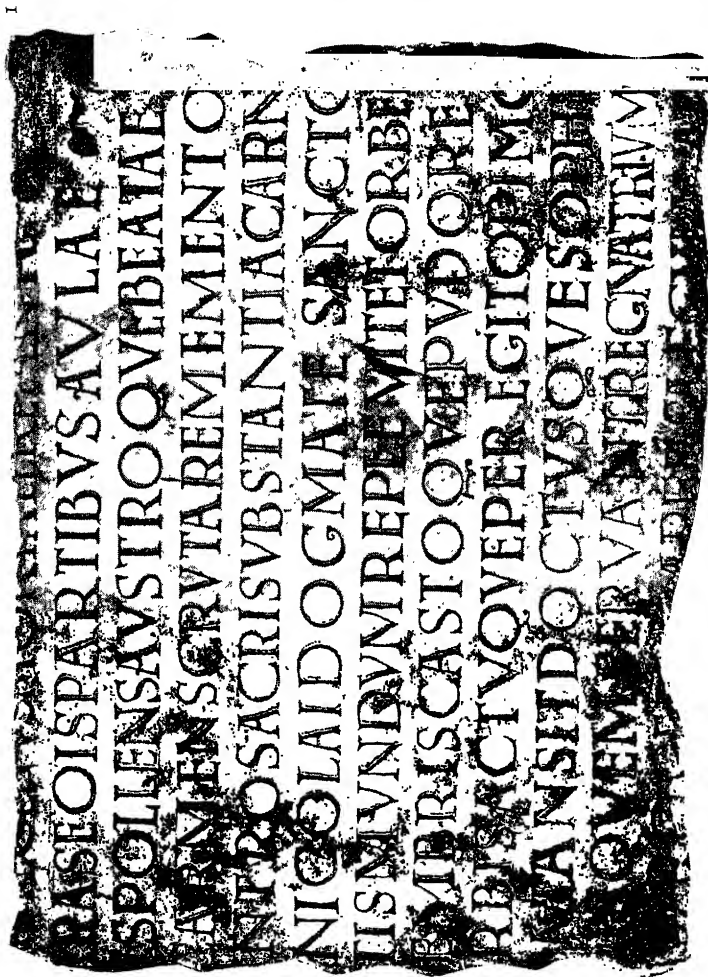 RASEOISPARTIBVSAVLAE
SPOLLENSAVSTROQVEBEATAE
ARMENSCRVTAREMEMENTO
NTROSACRISVBSTANTIACARN
NICOLAIDOGMATESANCTO
LISMVNDVMREPLEVITETORBE
MPRISCASTOQVEPVDORE
RBISACTVQVEPEREGITOPIMO
ANSITDOCTVSQVESOPH
QVEMSERVANTREGNATRIVM